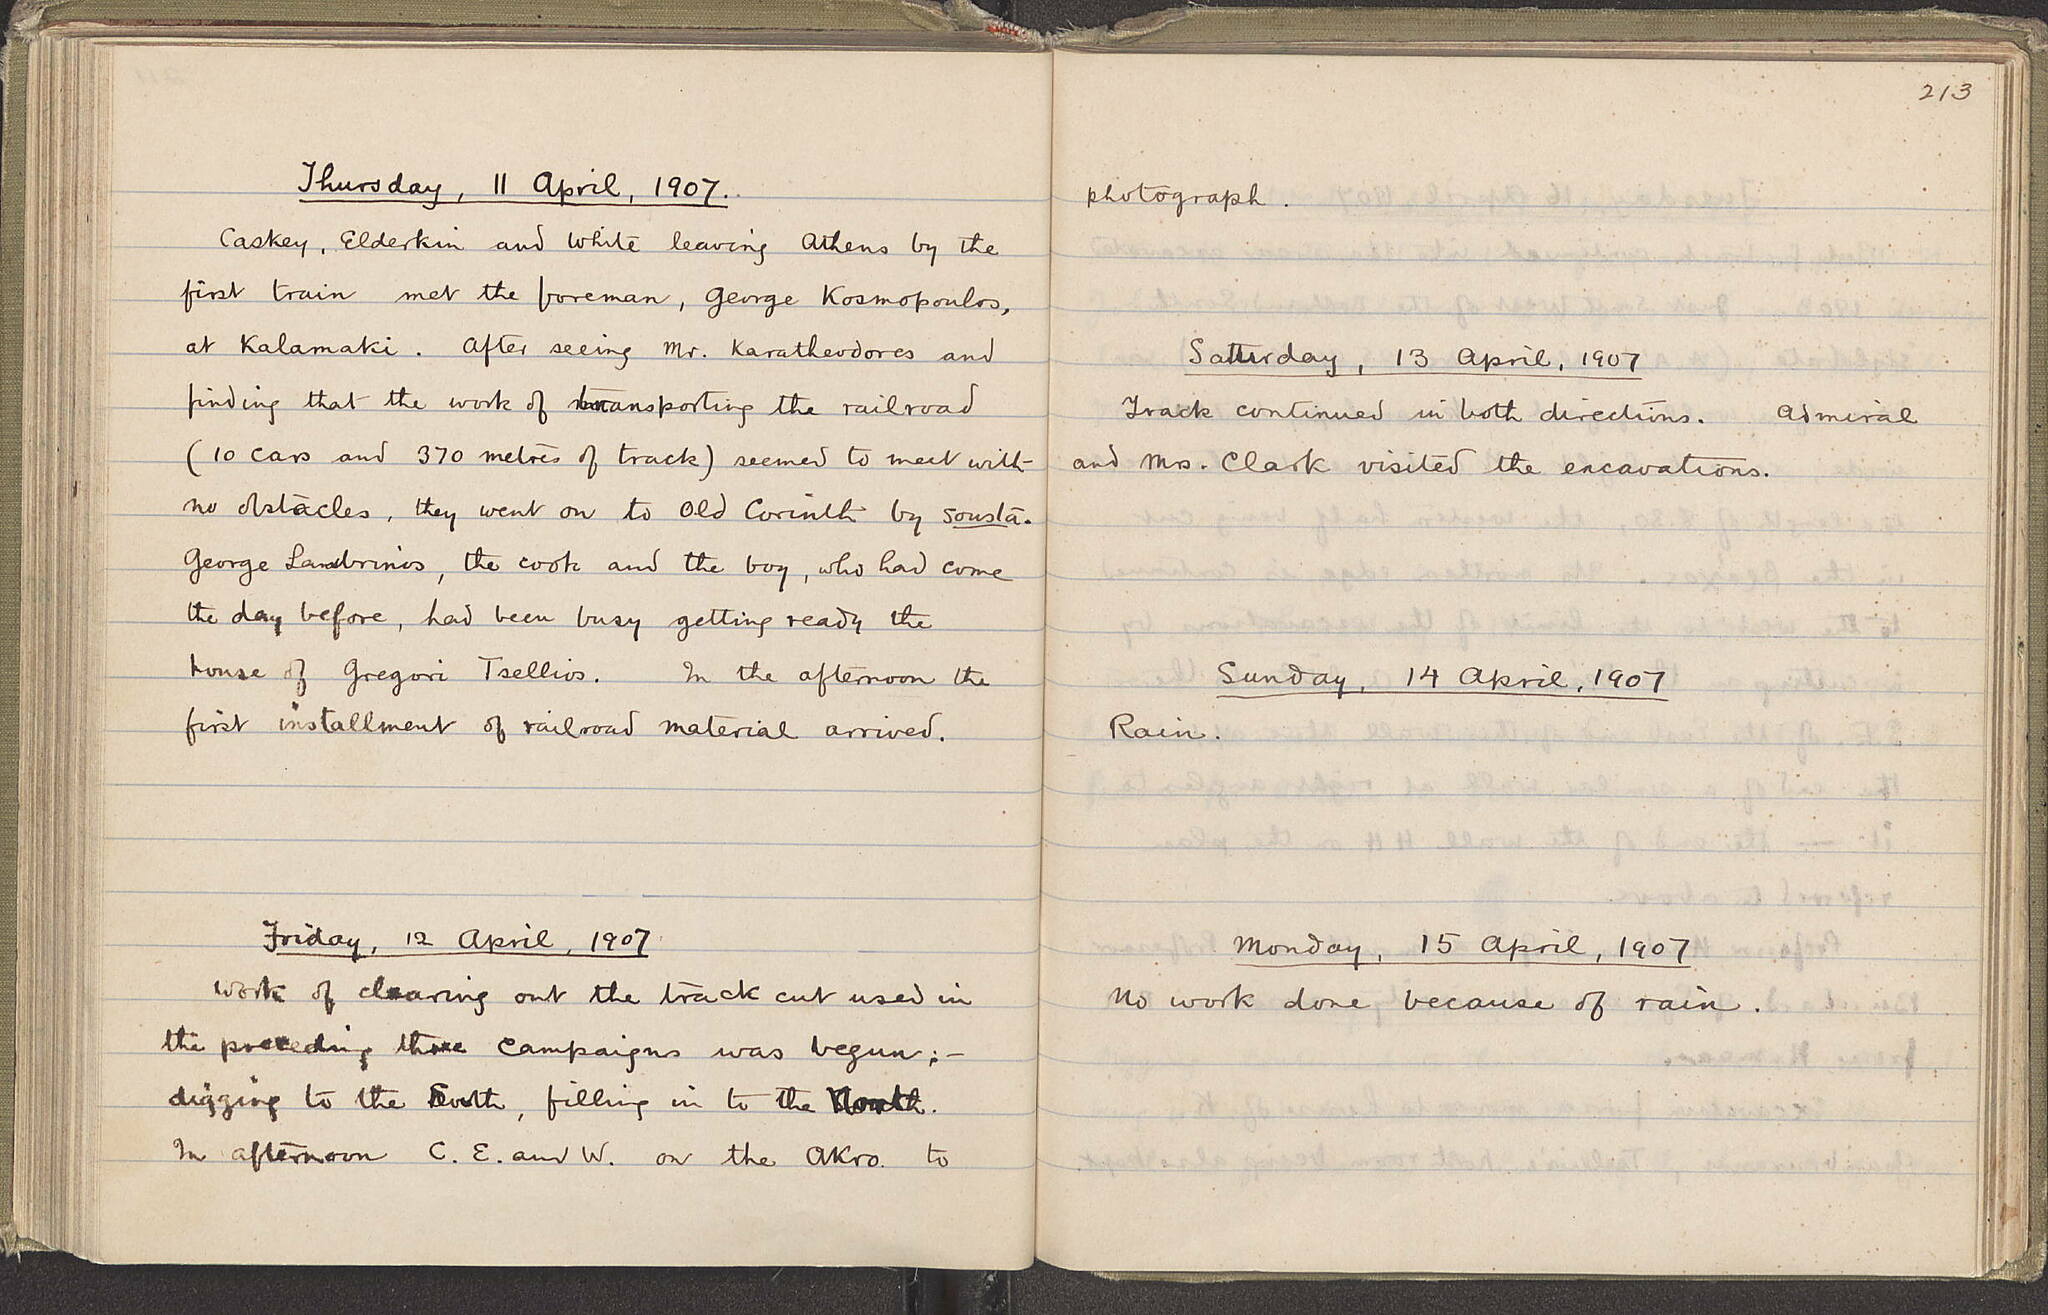 Thursday, 11 April, 1907.
Caskey, Elderkin and White leaving Athens by the
first train met the foreman, George Kosmopoulos,
at Kalamaki. After seeing Mr. Karatheodores and
finding that the work of transporting the railroad
(10 cars and 370 metres of track) seemed to meet with
no obstacles, they went on to Old Corinth by sousta.
George Lambrinos, the cook and the boy, who had come
the day before, had been busy getting ready the
house of Gregori Tsellios. In the afternoon the
first installment of railroad material arrived.
Friday, 12 April, 1907
Work of clearing out the track cut used in
the preceding three campaigns was begun;—
digging to the South, filling in to the North.
In afternoon C. E. and W. on the Akro. to
213
photograph.
Saturday, 13 April, 1907
Track continued in both directions. Admiral
and Mrs. Clark visited the excavations.
Sunday, 14 April, 1907
Rain.
Monday, 15 April, 1907
No work done because of rain.